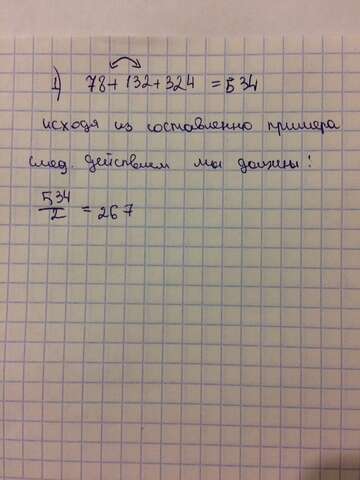 1) 78+132+324 = 534
исходя из составленно примера
след. действием мы должны:
534/2 = 267